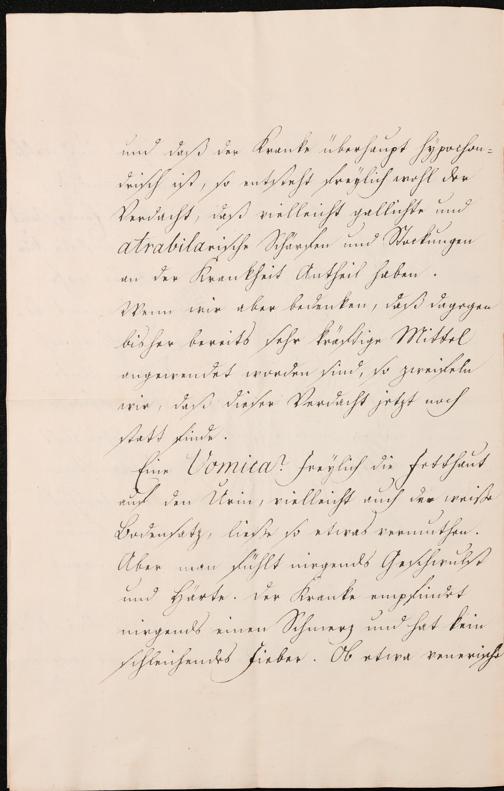 und daß der Kranke überhaupt hypochon=
drisch ist, so entsteht freylich wohl der
Verdacht, daß vielleicht gallichte und
atrabilarische Schärfen und Stockungen
an der Krankheit Antheil haben.
Wenn wir aber bedenken, daß dagegen
bisher bereits sehr kräftige Mittel
angewendet worden sind, so zweifeln
wir, daß dieser Verdacht jetzt noch
statt finde.
Eine Vomica? freylich die Fetthaut
auf den Urin, vielleicht auch der weiße
Bodensatz, ließe so etwas vermuthen.
Aber man fühlt nirgends Geschwulst
und Härte. Der Kranke empfindet
nirgends einen Schmerz und hat kein
schleichendes Fieber. Ob etwa venerische